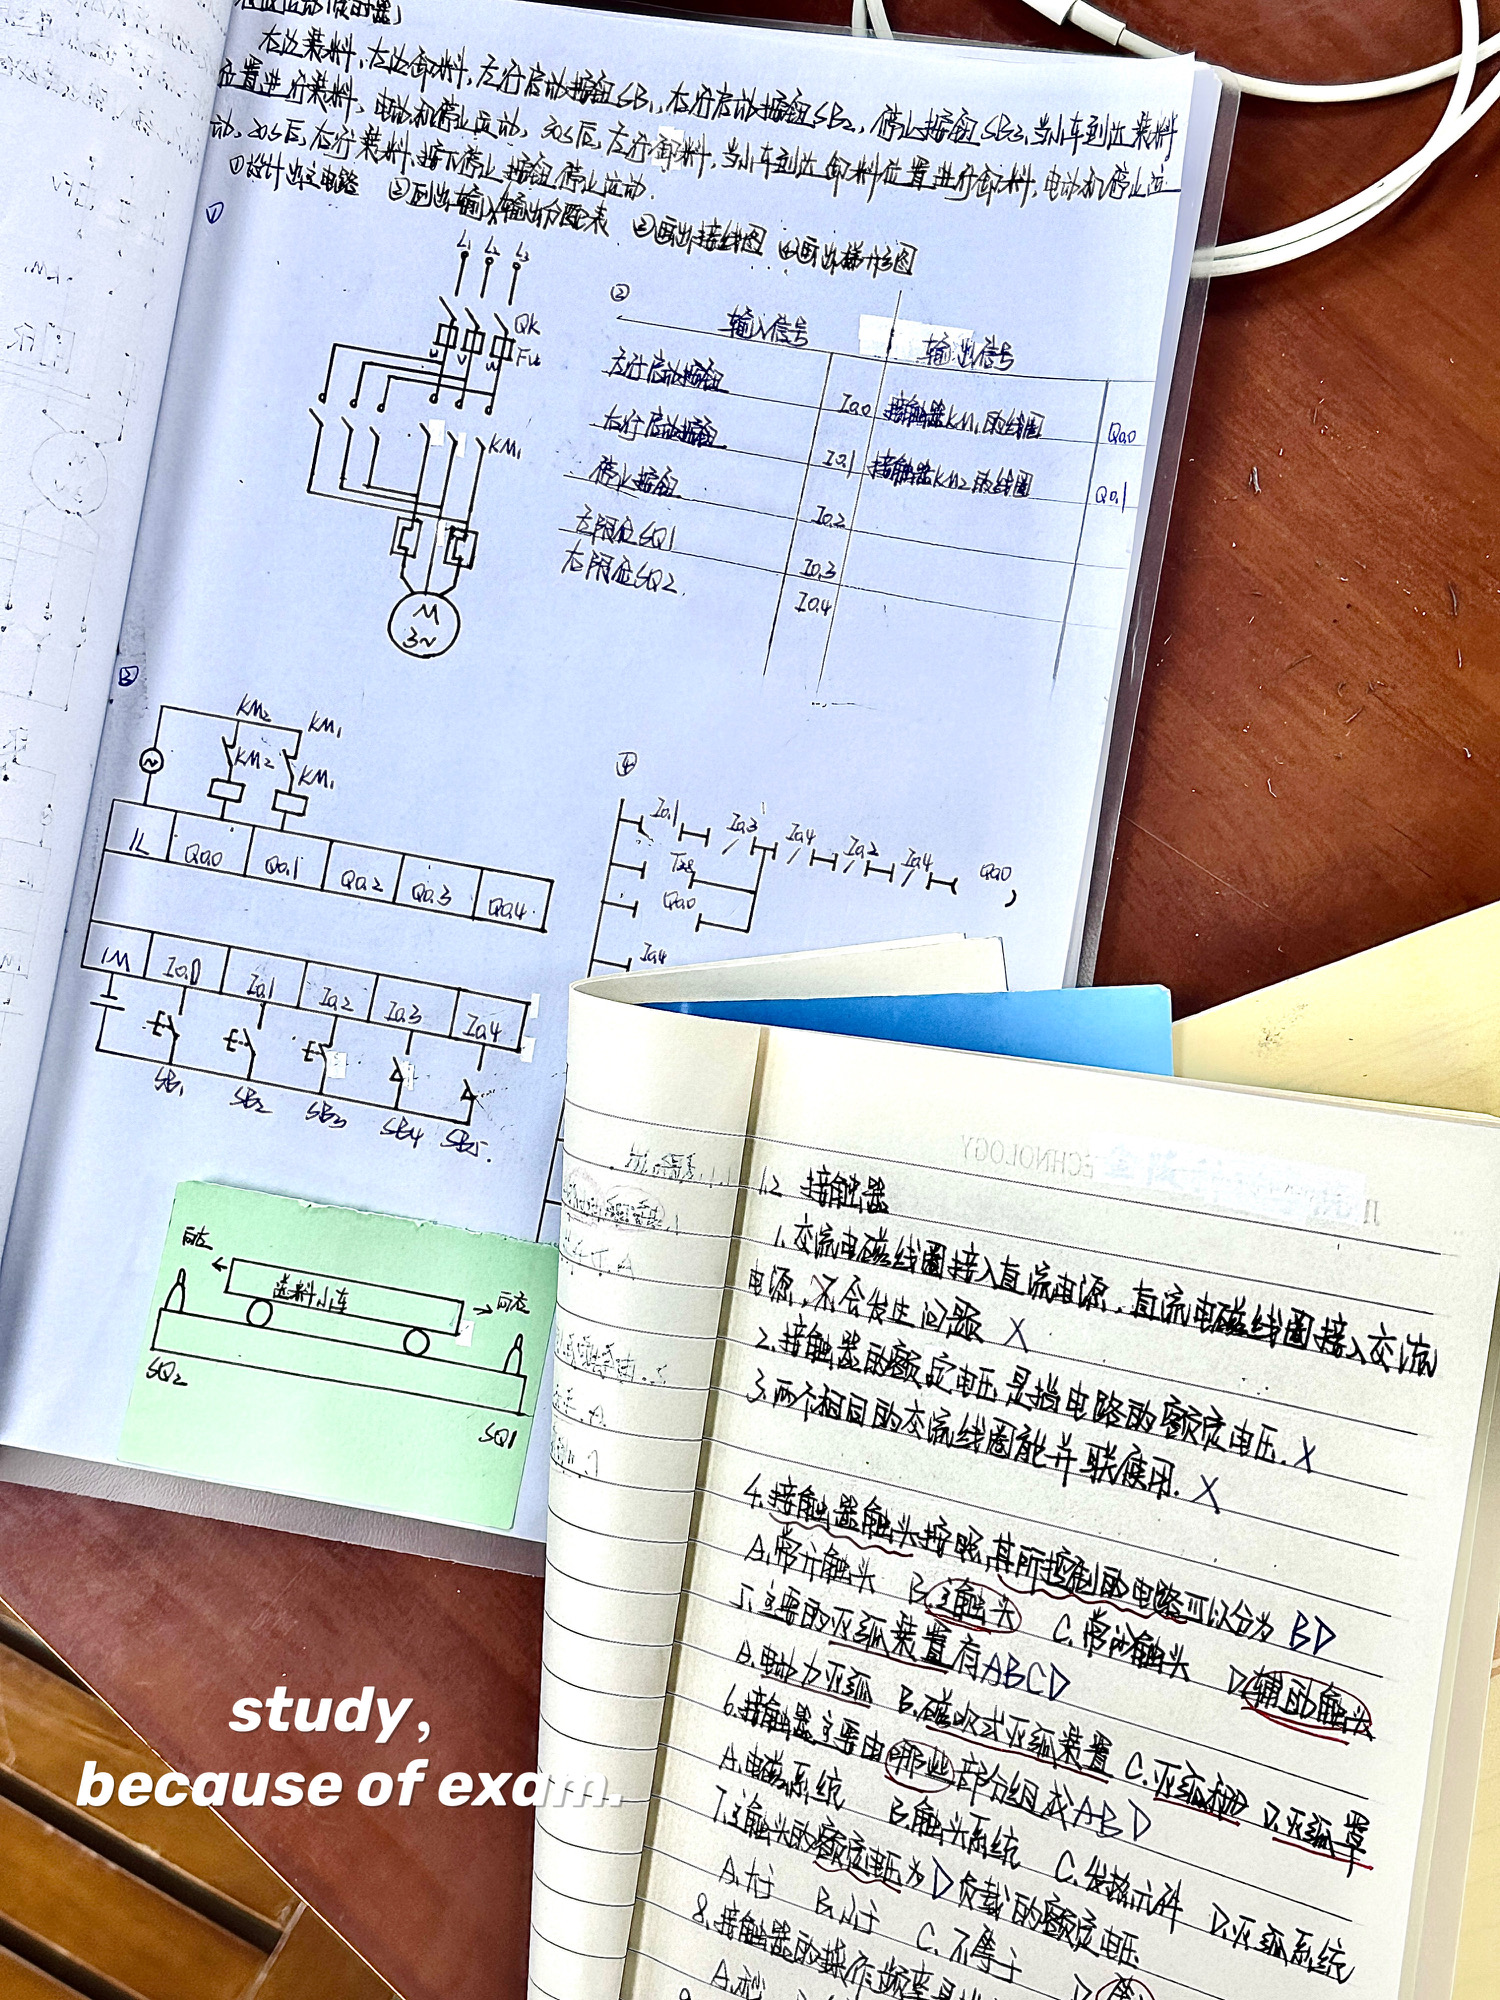 右边装料,左边卸料,左行启动按钮SB1,右行启动按钮SB2,停止按钮SB3,当小车到达装料
位置进行装料,电动机停止运动,30s后,左行卸料,当小车到达卸料位置进行卸料,电动机停止运
动,20s后,右行装料,按下停止按钮停止运动.
①设计出主电路 ②列出输入输出分配表 ③画出接线图 ④画出梯形图
①
L1 L2 L3
QK
FU
U V W
KM1
M
3~
②
输入信号 输出信号
左行启动按钮 I0.0 接触器KM1的线圈 Q0.0
右行启动按钮 I0.1 接触器KM2的线圈 Q0.1
停止按钮 I0.2
左限位SQ1 I0.3
右限位SQ2. I0.4
③
KM2 KM1
KM2 KM1
1L Q0.0 Q0.1 Q0.2 Q0.3 Q0.4
1M I0.0 I0.1 I0.2 I0.3 I0.4
SB1 SB2 SB3 SB4 SB5.
④
I0.1 I0.3 I0.4 I0.2 I0.4 Q0.0
Q0.0
I0.4
向左
送料小车
向右
SQ2
SQ1
1.2 接触器
1.交流电磁线圈接入直流电源,直流电磁线圈接入交流
电源,不会发生问题 X
2.接触器的额定电压是指电路的额定电压. X
3.两个相同的交流线圈能并联使用. X
4.接触器触头按照其所控制的电路可以分为 BD
A.常开触头 B.主触头 C.常闭触头 D.辅助触头
5.主要的灭弧装置有ABCD
A.电动力灭弧 B.磁吹式灭弧装置 C.灭弧栅 D.灭弧罩
6.接触器主要由哪些部分组成ABD
A.电磁系统 B.触头系统 C.发热元件 D.灭弧系统
7.主触头的额定电压为D负载的额定电压
A.大于 B.小于 C.不等于 D.
8.接触器的操作频率是
A.秒
study,
because of exam.